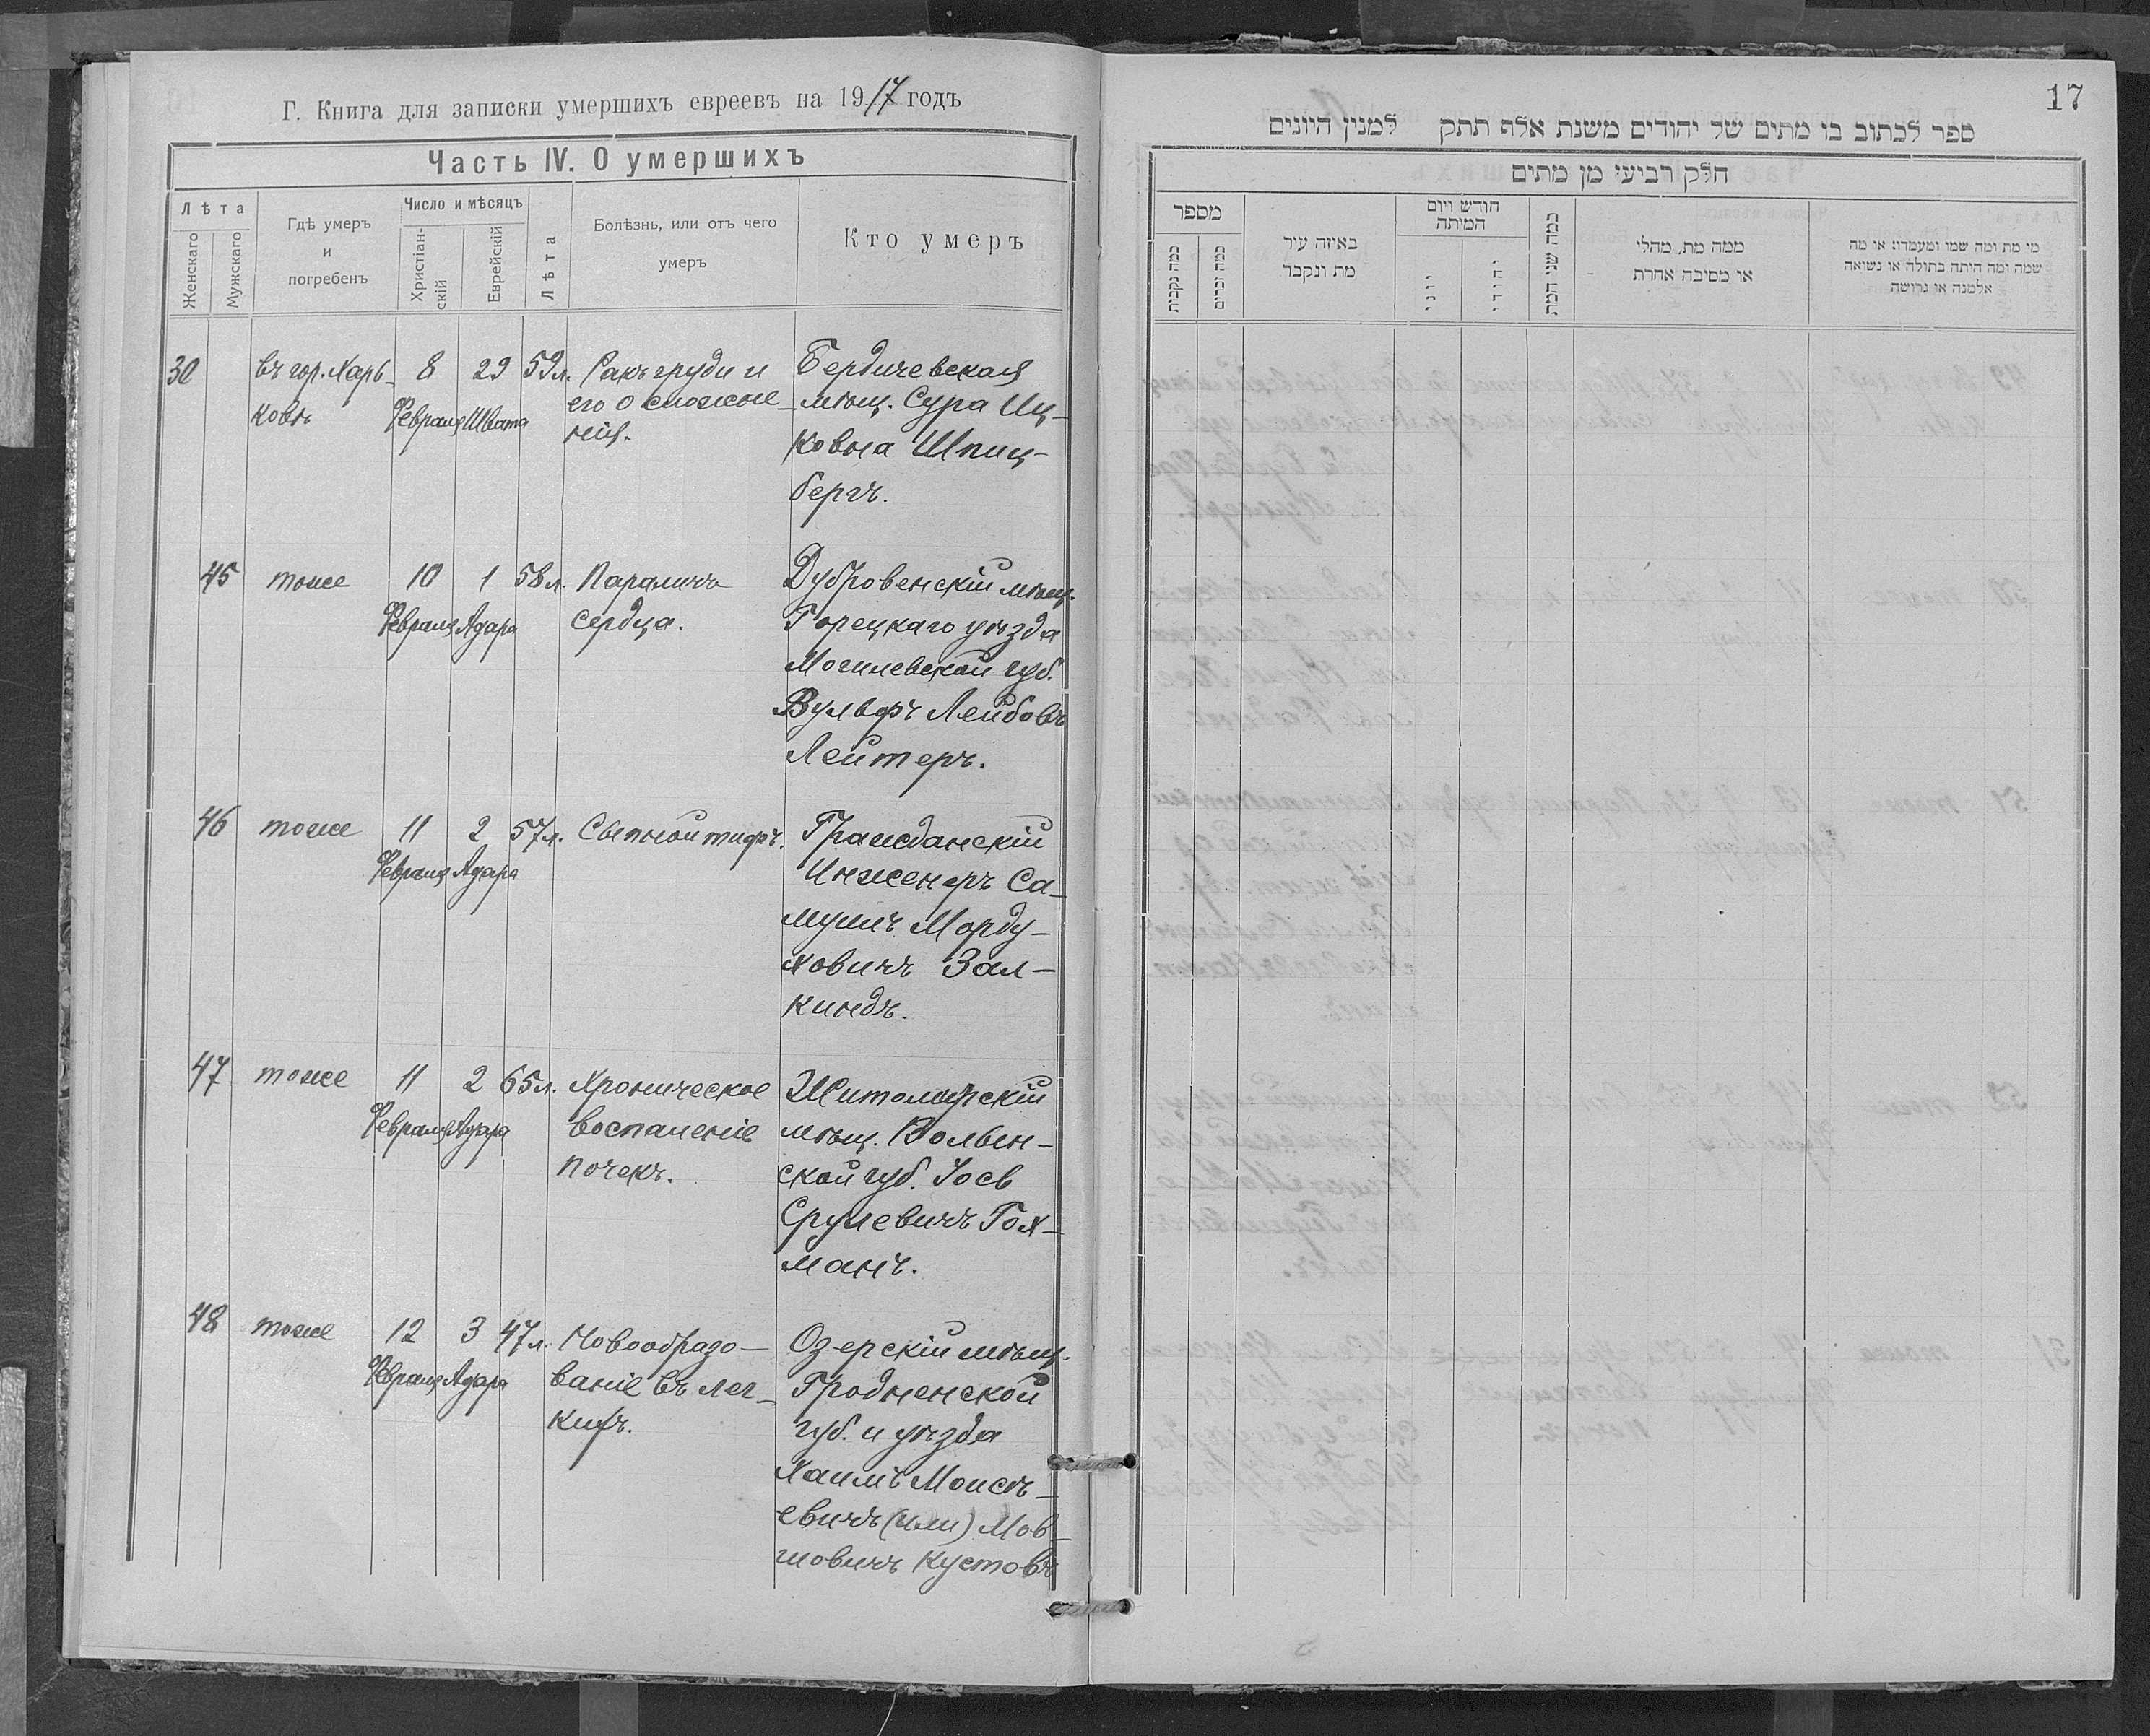 Г. Книга для записки умершихъ евреевъ на 1917 годъ
Часть IV. О умершихъ
Лѣта
Женскаго
Мужскаго
Гдѣ умеръ
и
погребенъ
Число и мѣсяцъ
Христіан-
скій
Еврейскій
Лѣта
Болѣзнь, или отъ чего
умеръ
Кто умеръ
30 въ гор. Харь- 8 29 59 л. Ракъ груди и Бердичевская
его осложне- мѣщ. Сура Иц-
ковѣ Февраля Швата
нія. ковна Шпиц-
бергъ.
45 тоже 10 1 58 л. Параличъ Дубровенскій мѣщ.
Февраля Адара сердца. Горецкаго уѣзда
Могилевской губ.
Вульфъ Лейбовъ
Лейтеръ.
46 тоже 11 2 57 л. Сыпной тифъ. Гражданскій
Февраля Адара Инженеръ Са-
муилъ Морду-
ховичъ Зал-
киндъ.
47 тоже 11 2 65 л. Хроническое Житомірскій
Февраля Адара воспаленіе мѣщ. Волын-
почекъ. ской губ. Іось
Срулевичъ Гох-
манъ.
48 тоже 12 3 47 л. Новообразо- Озерскій мѣщ.
Февраля Адара ваніе въ лег- Гродненской
кихъ. губ. и уѣзда
Хаимъ Моисѣ-
евичъ (или) Мов-
шовичъ Кустовъ
17
ספר לכתוב בו מתים של יהודים משנת אלף תתק למנין היונים
חלק רביעי מן מתים
מספר
כמה נקבות
כמה זכרים
באיזה עיר
מת ונקבר
חודש ויום
המיתה
יוני
יהודי
כמה שני המת
ממה מת, מחלי
או מסיבה אחרת
מי מת ומה שמו ומעמדו: או מה
שמה ומה היתה בתולה או נשואה
אלמנה או גרושה